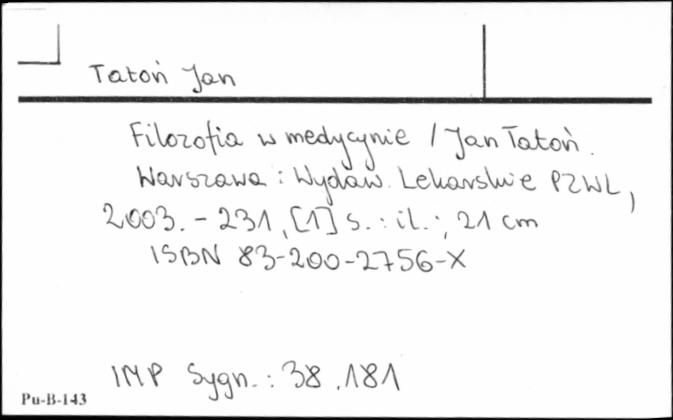 Tatoń Jan
Filozofia w medycynie / Jan Tatoń.
Warszawa : Wydaw. Lekarskie PZWL,
2003. - 231, [1] s. : il. ; 21 cm
ISBN 83-200-2756-X
IMP Sygn. : 38.181
Pu-B-143